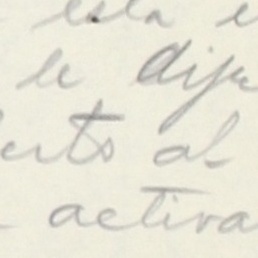 esta e
le dije
erto al
activa